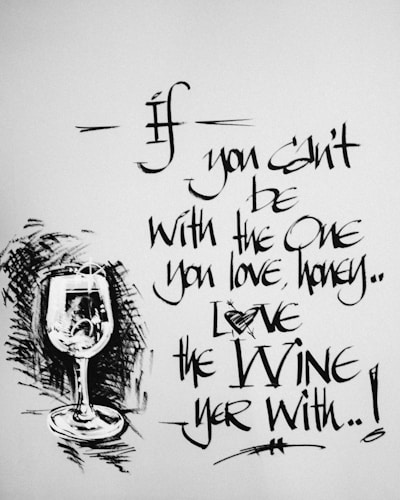 — If —
you can't
be
with the One
you love, honey..
LOVE
the WINE
yer with..!